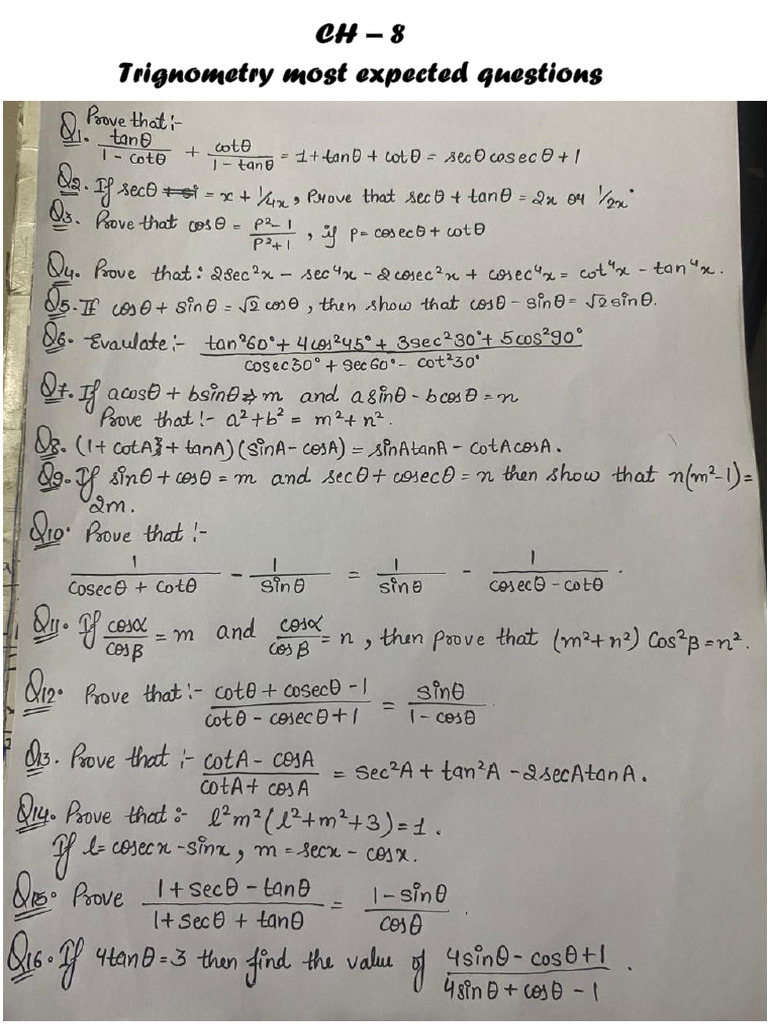 CH – 8
Trignometry most expected questions
Prove that :-
Q1. tanθ/(1 - cotθ) + cotθ/(1 - tanθ) = 1 + tanθ + cotθ = secθ cosecθ + 1
Q2. If secθ = x + 1/4x, Prove that secθ + tanθ = 2x or 1/2x.
Q3. Prove that cosθ = (P² - 1)/(P² + 1), if p = cosecθ + cotθ
Q4. Prove that: 2sec²x - sec⁴x - 2cosec²x + cosec⁴x = cot⁴x - tan⁴x.
Q5. If cosθ + sinθ = √2 cosθ, then show that cosθ - sinθ = √2 sinθ.
Q6. Evaulate :- (tan²60° + 4cos²45° + 3sec²30° + 5cos²90°)/(cosec30° + sec60° - cot²30°)
Q7. If acosθ + bsinθ = m and asinθ - bcosθ = n
Prove that :- a² + b² = m² + n².
Q8. (1 + cotA + tanA)(sinA - cosA) = sinAtanA - cotAcosA.
Q9. If sinθ + cosθ = m and secθ + cosecθ = n then show that n(m² - 1) =
2m.
Q10. Prove that :-
1/(cosecθ + cotθ) - 1/sinθ = 1/sinθ - 1/(cosecθ - cotθ).
Q11. If cosα/cosβ = m and cosα/sinβ = n, then prove that (m² + n²) cos²β = n².
Q12. Prove that :- (cotθ + cosecθ - 1)/(cotθ - cosecθ + 1) = sinθ/(1 - cosθ)
Q13. Prove that :- (cotA - cosA)/(cotA + cosA) = sec²A + tan²A - 2secAtanA.
Q14. Prove that :- l²m²(l² + m² + 3) = 1.
If l = cosecx - sinx, m = secx - cosx.
Q15. Prove (1 + secθ - tanθ)/(1 + secθ + tanθ) = (1 - sinθ)/cosθ.
Q16. If 4tanθ = 3 then find the value of (4sinθ - cosθ + 1)/(4sinθ + cosθ - 1).